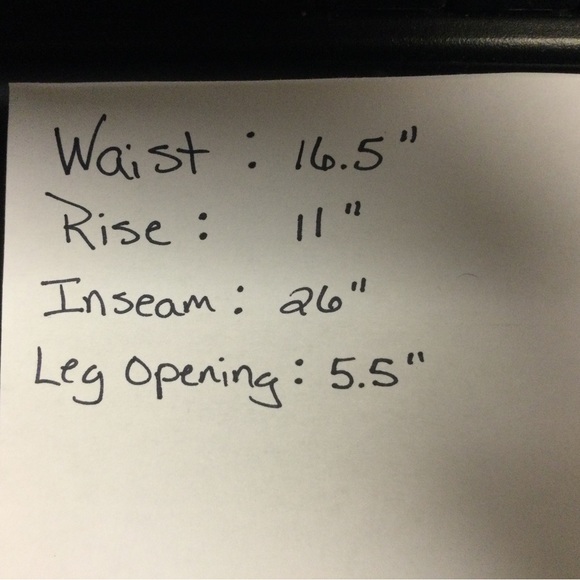 Waist : 16.5"
Rise : 11"
Inseam : 26"
Leg Opening : 5.5"